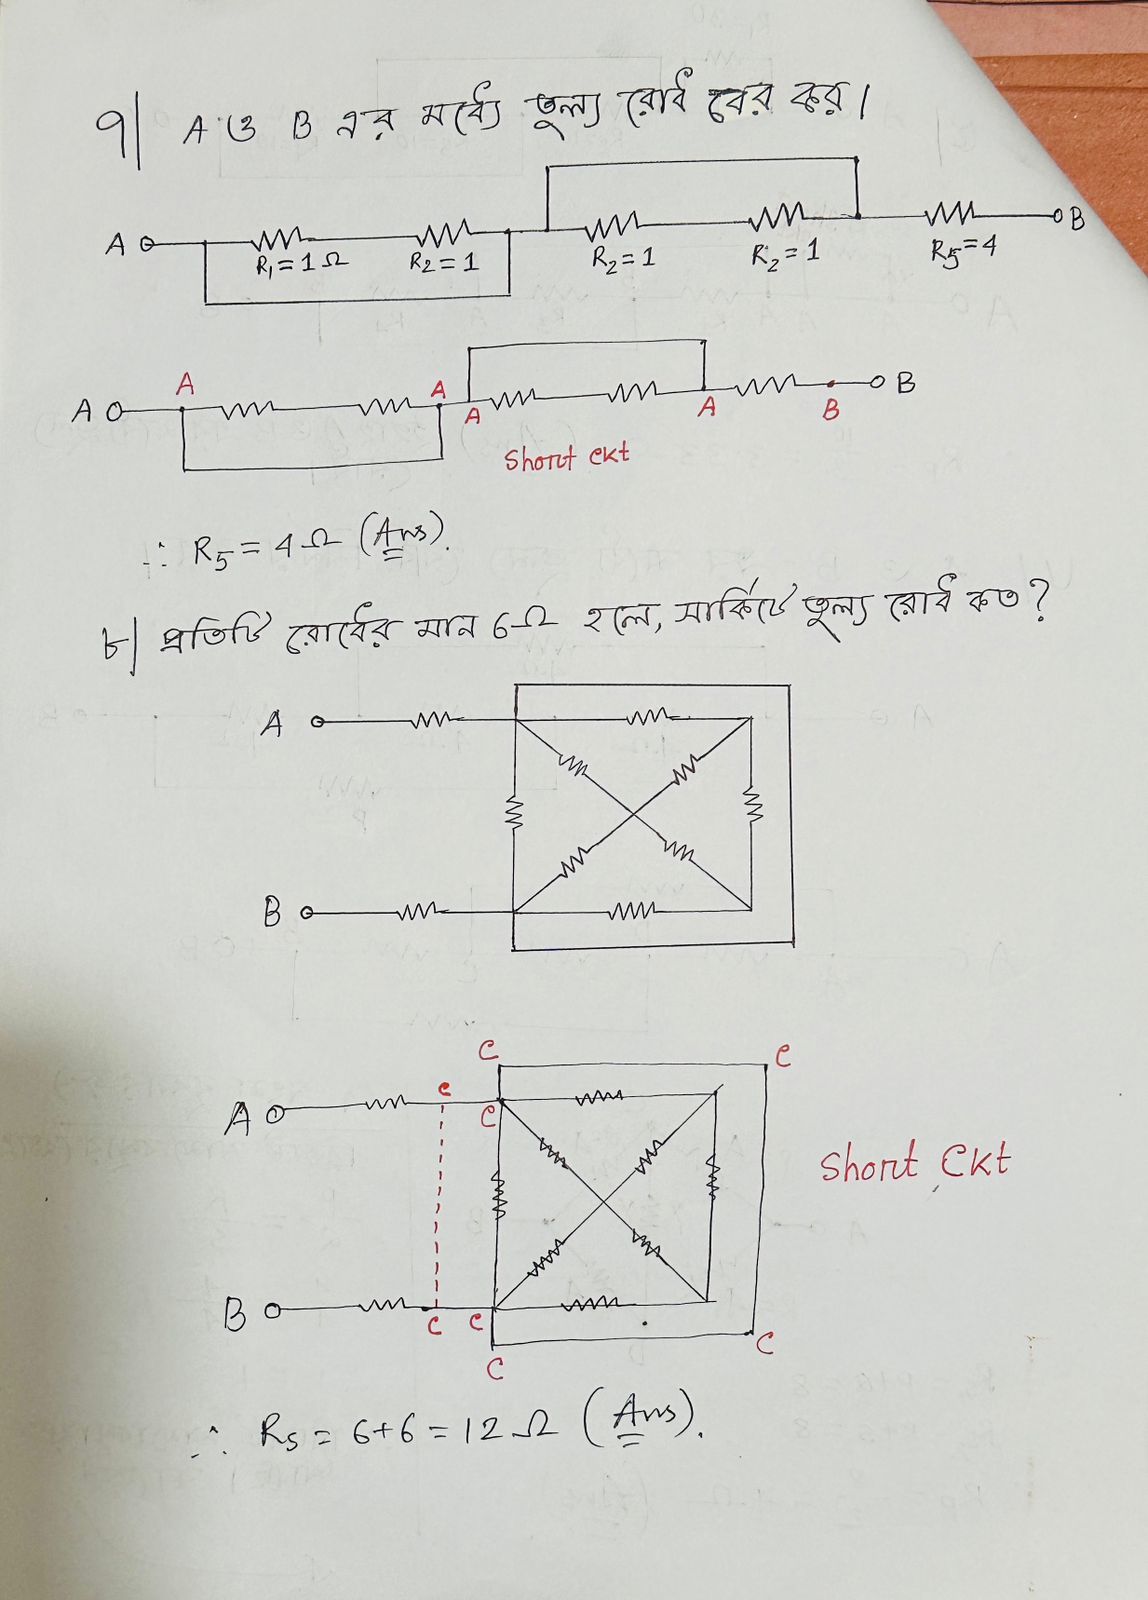 ৭| A ও B এর মধ্যে তুল্য রোধ বের কর।
A B
R₁=1Ω R₂=1 R₂=1 R₂=1 R₅=4
A A A A A B B
Short ckt
∴ R₅=4Ω (Ans).
৮| প্রতিটি রোধের মান 6Ω হলে, সার্কিটে তুল্য রোধ কত?
A
B
C C
A C C
Short Ckt
B C C C
C
∴ Rs = 6+6 = 12Ω (Ans).